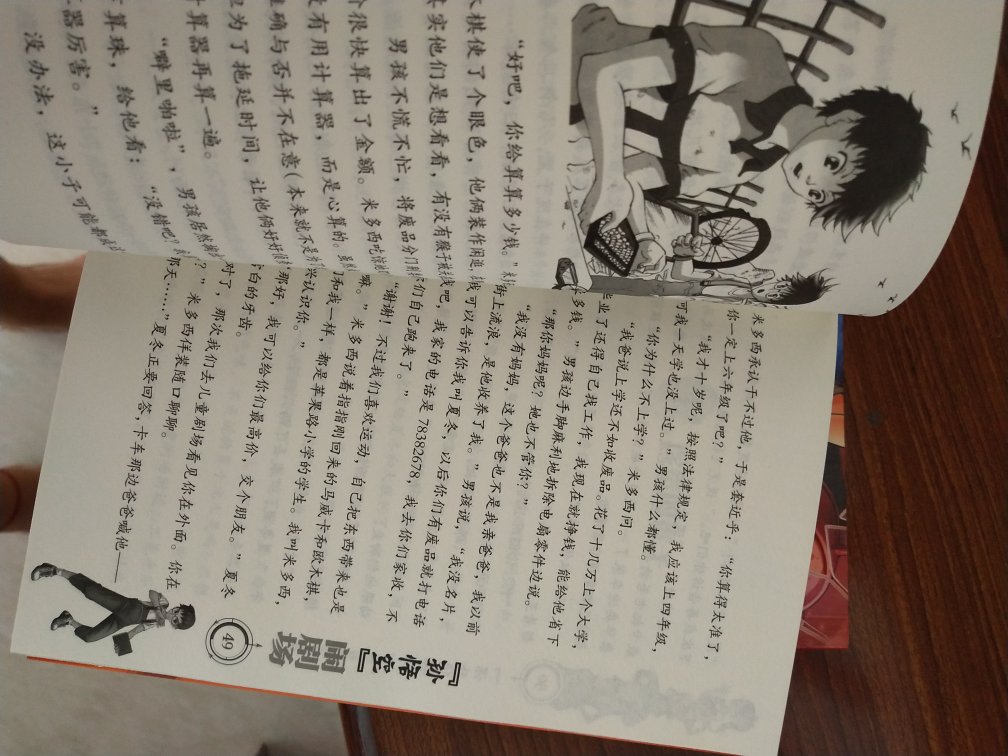 “好吧，你给算算多少钱。”
木棋使了个眼色，他俩装作闲逛，
其实他们是想看看，有没有猴子被
男孩不慌不忙，将废品分门别
个很快算出了金额。米多西吃惊
没有用计算器，而是心算的。虽然
准确与否并不在意（本来就不是为
但为了拖延时间，让他俩好好
计算器再算一遍。
“噼里啪啦”，男孩居然
算珠，给他看：“没错吧？
器厉害。”
没办法，这小子可能都
米多西承认干不过他，于是套近乎：“你算得太准了，
你一定上六年级了吧？”
“我才十岁呢，按照法律规定，我应该上四年级，
可我一天学也没上过。”男孩什么都懂。
“你为什么不上学？”米多西问。
“我爸说上学还不如收废品。花了十几万上个大学，
业了还得自己找工作，我现在就挣钱，能给他省下
多钱。”男孩边手脚麻利地拆除电扇零件边说。
“那你妈妈呢？她也不管你？”
“我没有妈妈，这个爸爸也不是我亲爸爸，我以前
街上流浪，是他收养了我。”男孩说，“我没名片，
我可以告诉你我叫夏冬，以后你们有废品就打电话
吧，我家的电话是78382678，我去你们家收，不
们自己跑来了。”
“谢谢！不过我们喜欢运动，自己把东西带来也是
嘛。”米多西说着指指刚回来的马威卡和欧木棋，
们和我一样，都是苹果路小学的学生。我叫米多西，
兴认识你。”
“那好，我可以给你们最高价，交个朋友。”夏冬
白的牙齿。
对了，那次我们去儿童剧场看见你在外面。你在
？”米多西佯装随口聊聊。
那天……”夏冬正要回答，卡车那边爸爸喊他——
『孙悟空』
闹剧场
49